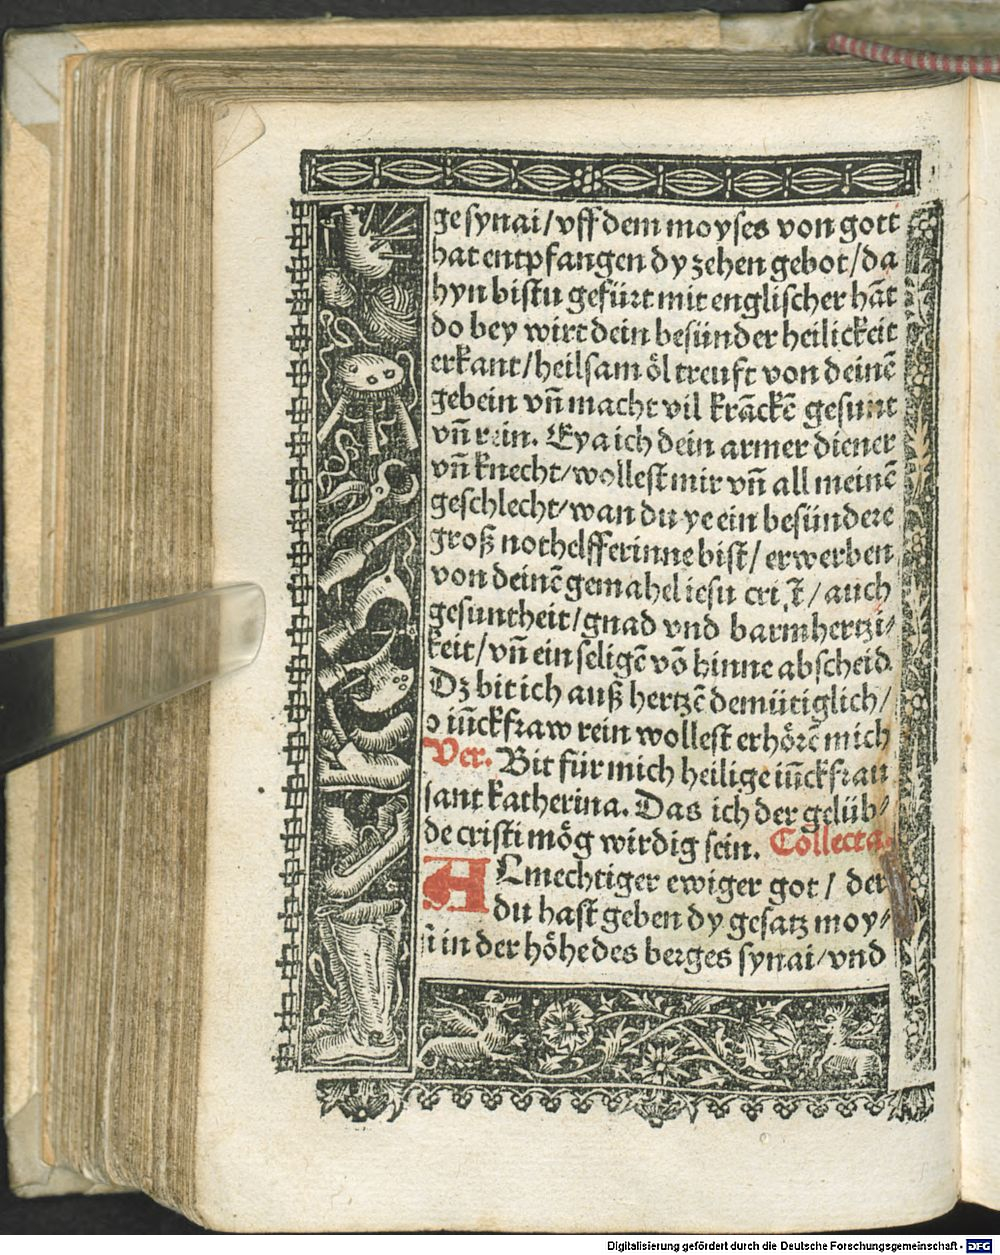 ge synai / vff dem moyses von gott
hat entpfangen dy zehen gebot / da
hyn bistu gefürt mit englischer hāt
do bey wirt dein besünder heilickeit
erkant / heilsam öl treuft von deinē
gebein vn̄ macht vil krāckē gesunt
vn̄ rein. Eya ich dein armer diener
vn̄ knecht / wollest mir vn̄ all meinē
geschlecht / wan du ye ein besündere
groß nothelfferinne bist / erwerben
von deinē gemahel iesu / auch
gesuntheit / gnad vnd barmhertzi⸗
keit / vn̄ ein seligē vō hinne abscheid.
Dz bit ich auß hertzē demütiglich /
o iūckfraw rein wollest erhörē mich
Ver. Bit für mich heilige iūckfrau
sant katherina. Das ich der gelüb⸗
de cristi mög wirdig sein. Collecta.
ALmechtiger ewiger got / der
du hast geben dy gesatz moy⸗
si in der höhe des berges synai / vnd
Digitalisierung gefördert durch die Deutsche Forschungsgemeinschaft - DFG